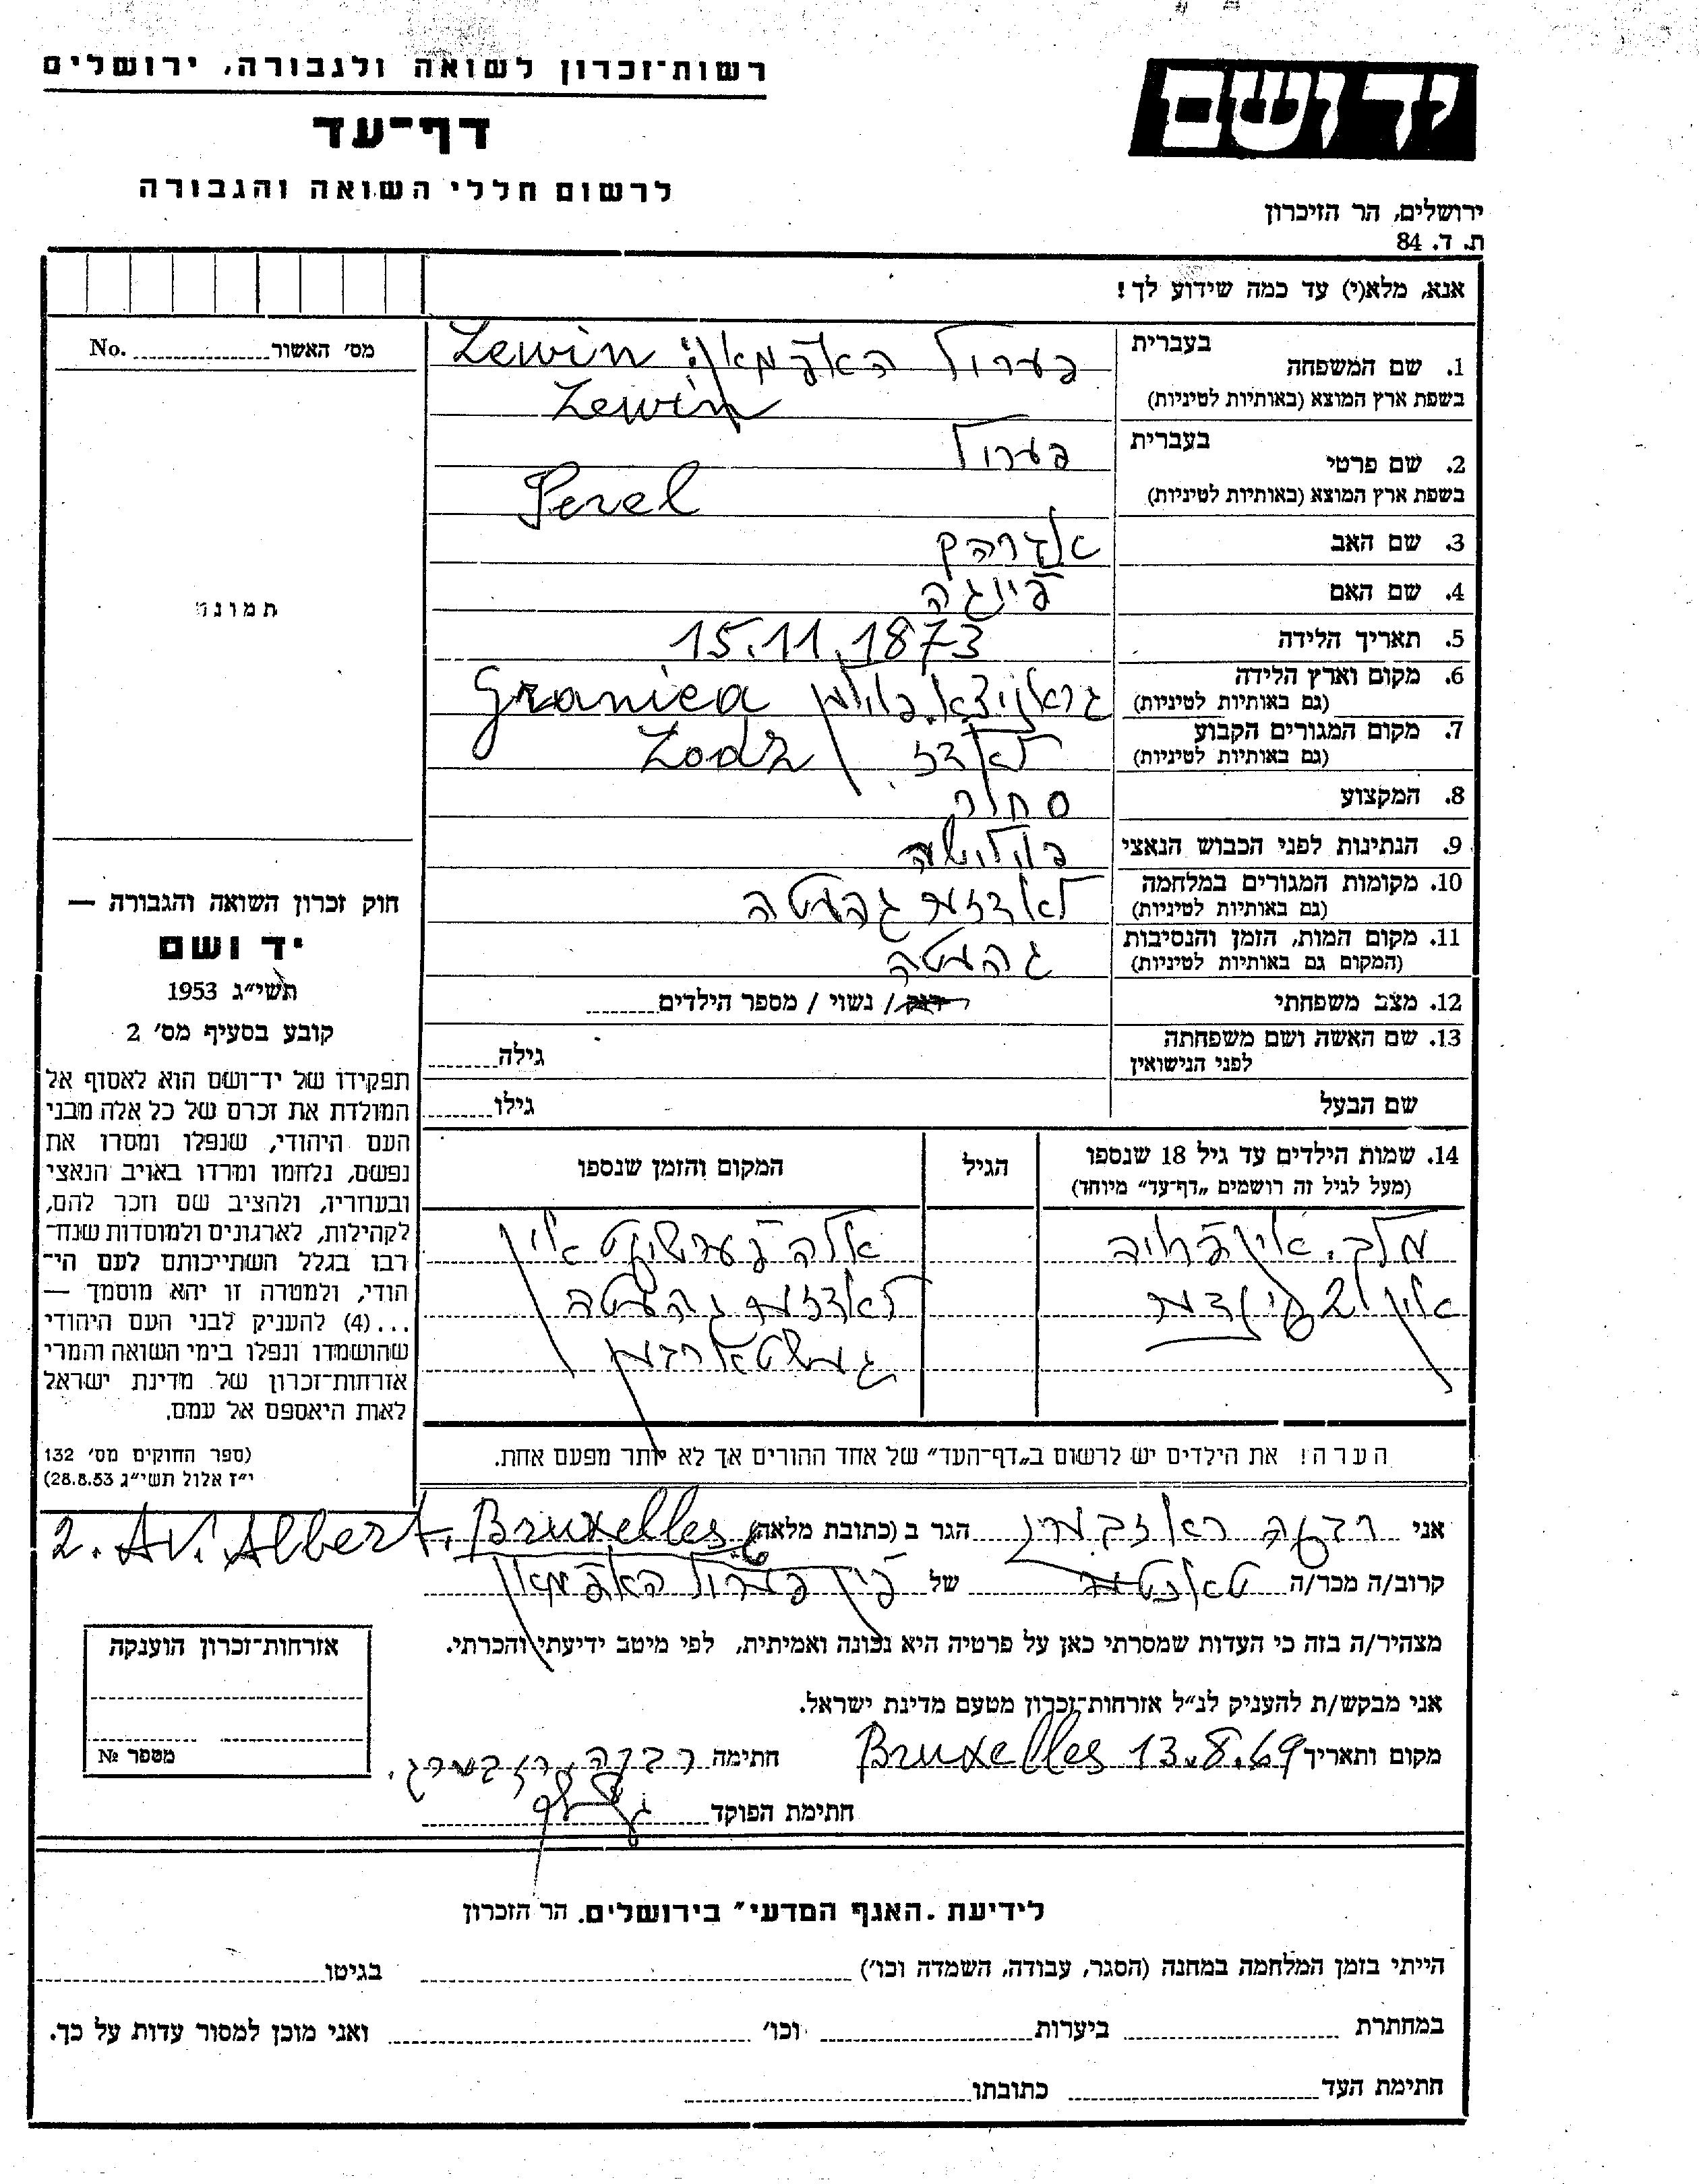 רשות־זכרון לשואה ולגבורה, ירושלים
דף־עד
לרשום חללי השואה והגבורה
יד ושם
ירושלים, הר הזיכרון
ת. ד. 84
אנא, מלא(י) עד כמה שידוע לך!
מס׳ האשור No.
תמונה
1. שם המשפחה בעברית פערול האפמאן Lewin
בשפת ארץ המוצא (באותיות לטיניות) Lewin
2. שם פרטי בעברית פערול
בשפת ארץ המוצא (באותיות לטיניות) Perel
3. שם האב
4. שם האם
5. תאריך הלידה 15.11.1873
6. מקום וארץ הלידה גראניצא פוילן Granica
(גם באותיות לטיניות)
7. מקום המגורים הקבוע לאדז Lodz
(גם באותיות לטיניות)
8. המקצוע סחור
9. הנתינות לפני הכבוש הנאצי פוילישע
10. מקומות המגורים במלחמה לאדזער געטה
(גם באותיות לטיניות)
11. מקום המות, הזמן והנסיבות געטה
(המקום גם באותיות לטיניות)
12. מצב משפחתי רווק / נשוי / מספר הילדים
13. שם האשה ושם משפחתה
לפני הנישואין
גילה
שם הבעל גילו
14. שמות הילדים עד גיל 18 שנספו הגיל המקום והזמן שנספו
(מעל לגיל זה רושמים „דף־עד״ מיוחד)
אלה אין
און 2 קינדער לאדזער געטה
געשטארבען
הערה! את הילדים יש לרשום ב„דף־העד״ של אחד ההורים אך לא יותר מפעם אחת.
אני רבקה ראזבערג הגר ב (כתובת מלאה) 2. Av. Albert. Bruxelles.
קרוב/ה מכר/ה טאכטער של פון פערול האפמאן
מצהיר/ה בזה כי העדות שמסרתי כאן על פרטיה היא נכונה ואמיתית, לפי מיטב ידיעתי והכרתי.
אני מבקש/ת להעניק לנ״ל אזרחות־זכרון מטעם מדינת ישראל.
מקום ותאריך Bruxelles 13.8.69 חתימה רבקה רזבערג.
חתימת הפוקד
אזרחות־זכרון הוענקה
מספר №
חוק זכרון השואה והגבורה —
יד ושם
תשי״ג 1953
קובע בסעיף מס׳ 2
תפקידו של יד־ושם הוא לאסוף אל
המולדת את זכרם של כל אלה מבני
העם היהודי, שנפלו ומסרו את
נפשם, נלחמו ומרדו באויב הנאצי
ובעוזריו, ולהציב שם וזכר להם,
לקהילות, לארגונים ולמוסדות שנח־
רבו בגלל השתייכותם לעם הי־
הודי, ולמטרה זו יהא מוסמך —
...(4) להעניק לבני העם היהודי
שהושמדו ונפלו בימי השואה והמרי
אזרחות־זכרון של מדינת ישראל
לאות היאספם אל עמם.
(ספר החוקים מס׳ 132
י״ז אלול תשי״ג 28.8.53)
לידיעת „האגף המדעי״ בירושלים. הר הזכרון
הייתי בזמן המלחמה במחנה (הסגר, עבודה, השמדה וכו׳) בגיטו
במחתרת ביערות וכו׳ ואני מוכן למסור עדות על כך.
חתימת העד כתובתו